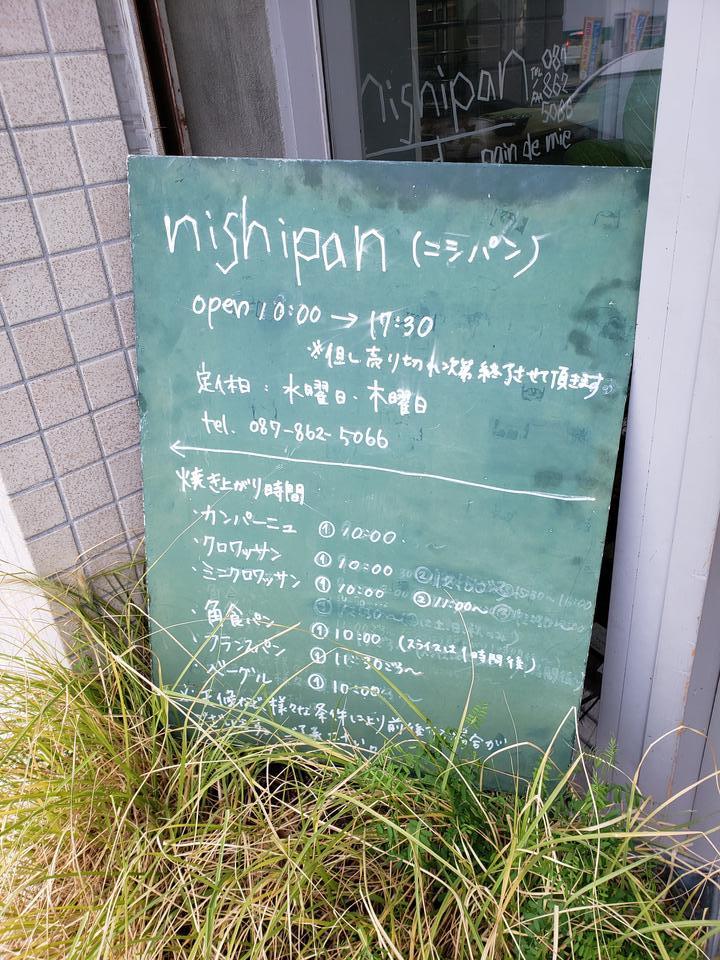 nishipan
TEL 087
FAX 862
5066
pain de mie
nishipan (ニシパン)
open 10:00 → 17:30
※但し売り切れ次第終了させて頂きます。
定休日: 水曜日・木曜日
tel. 087-862-5066
焼き上がり時間
・カンパーニュ ① 10:00
・クロワッサン ① 10:00
・ミニクロワッサン ① 10:00 ② 11:00~
・角食パン ① 10:00 (スライスは1時間後)
・フランスパン ① 11:30ごろ~
・ベーグル ① 10:00
※天候など様々な条件により前後する場合が